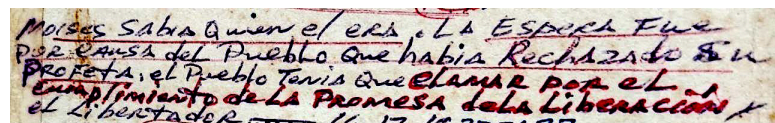 Moises Sabia Quien el era. La Espera Fue
Por causa del Pueblo que habia Rechazado Su
Profeta. el Pueblo Tenia que clamar por el
cumplimiento de la Promesa de la Liberación
el Libertador